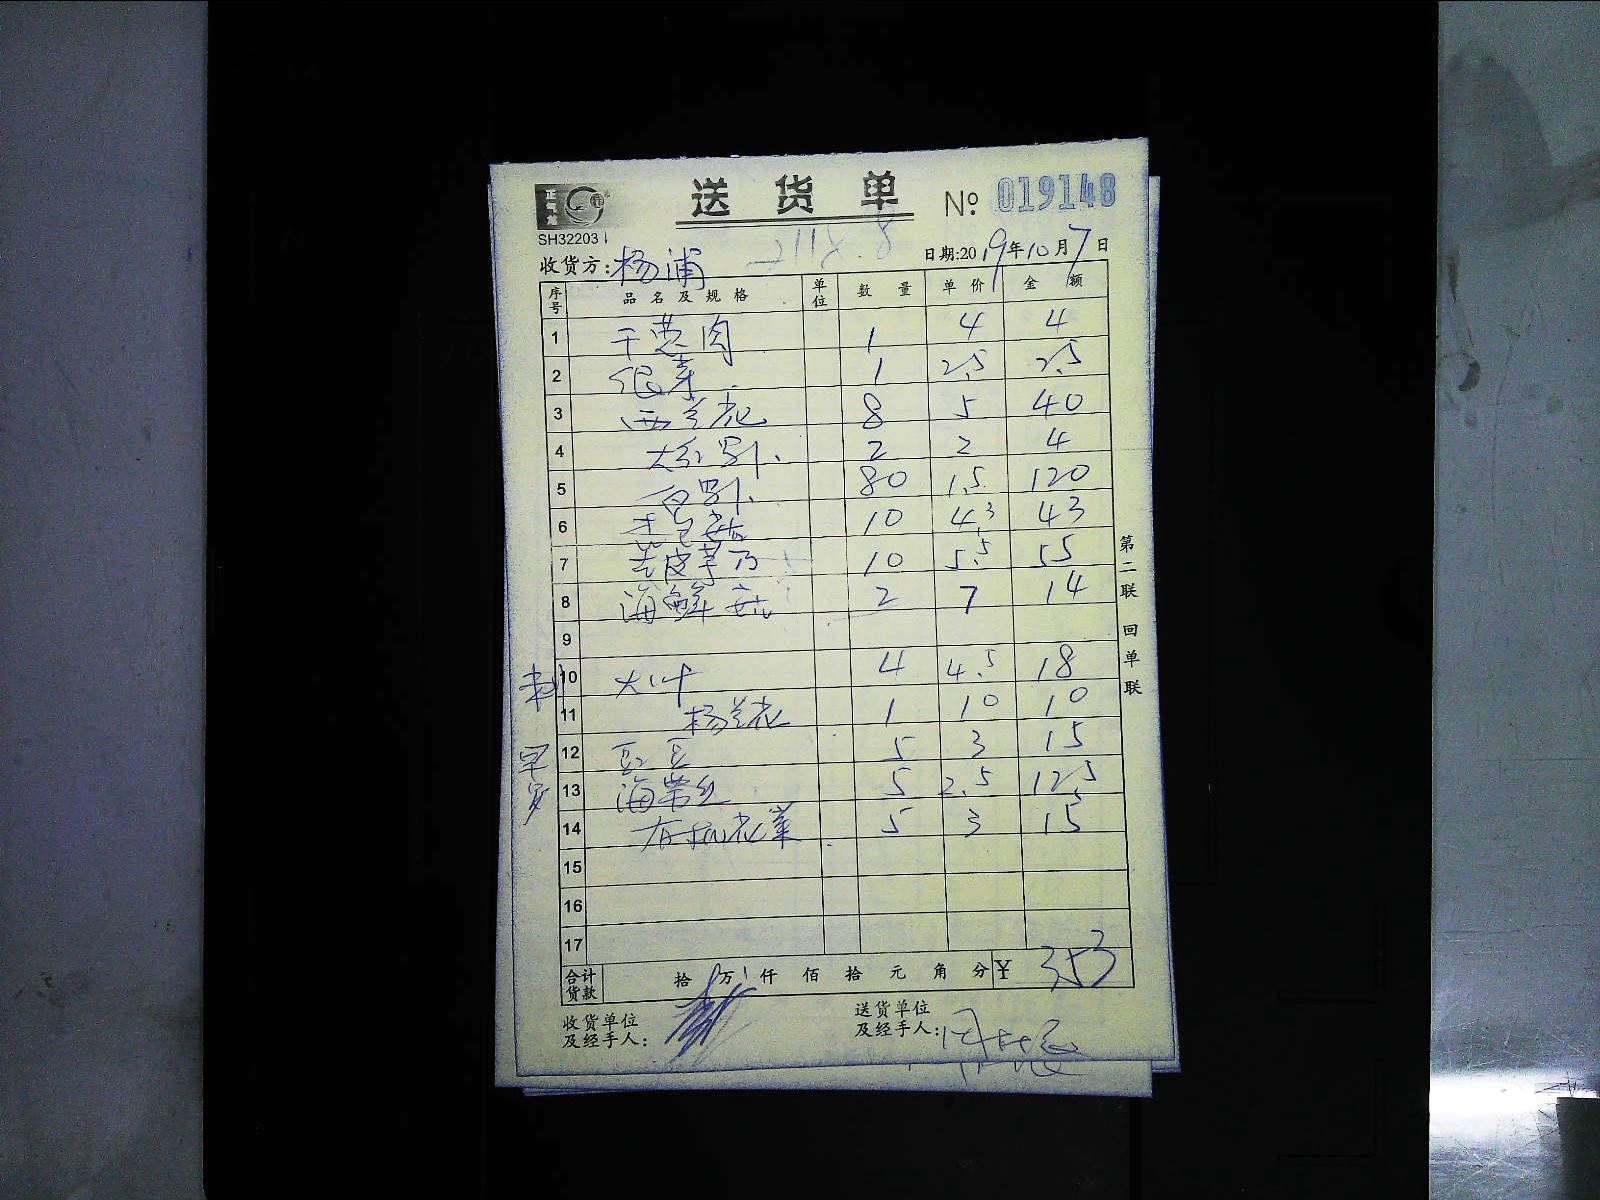 送货单 № 019148
SH32203
收货方: 杨浦 日期:2019年10月7日
序号 品名及规格 单位 数量 单价 金额
1 干葱肉 1 4 4
2 银芽 1 2.5 2.5
3 西兰花 8 5 40
4 大红 2 2 4
5 白 80 1.5 120
6 杏鲍菇 10 4.3 43
7 10 5.5 55
8 海鲜菇 2 7 14
9
10 大叶 4 4.5 18
11 杨兰花 1 10 10
12 豇豆 5 3 15
13 海带丝 5 2.5 12.5
14 有机花菜 5 3 15
15
16
17
合计货款 拾 万 仟 佰 拾 元 角 分 ¥ 353
收货单位及经手人:
送货单位及经手人:
第二联 回单联